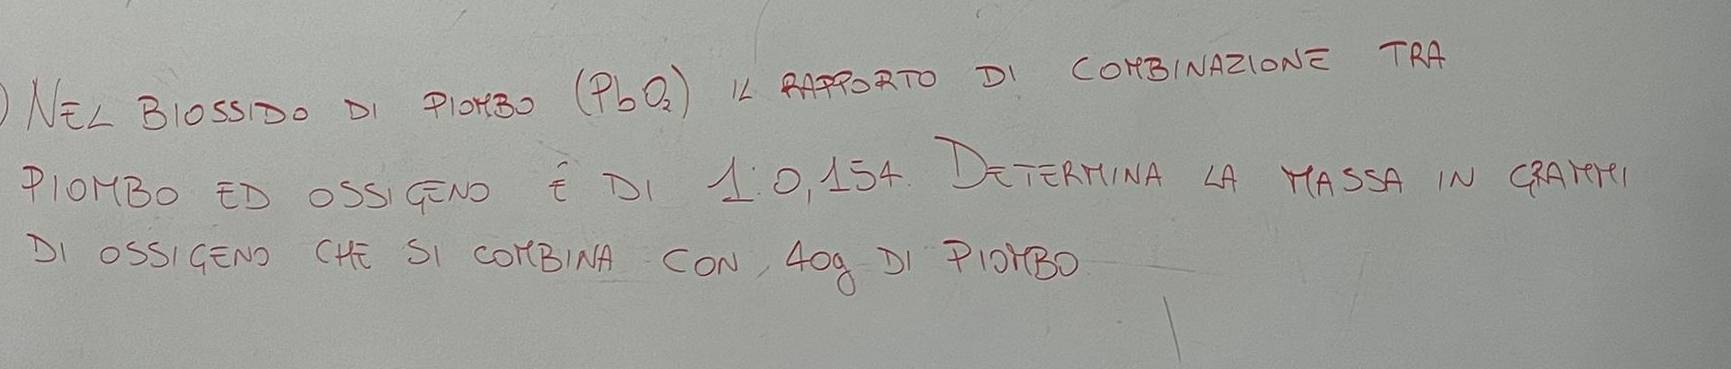 ) NEL BIOSSIDO DI PIOMBO (PbO₂) IL RAPPORTO DI COMBINAZIONE TRA
PIOMBO ED OSSIGENO Ê DI 1:0,154. DETERMINA LA MASSA IN GRAMMI
DI OSSIGENO CHE SI COMBINA CON 40g DI PIOMBO